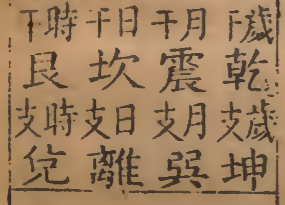 歲干乾歲支坤
月干震月支巽
日干坎日支離
時干艮時支兌